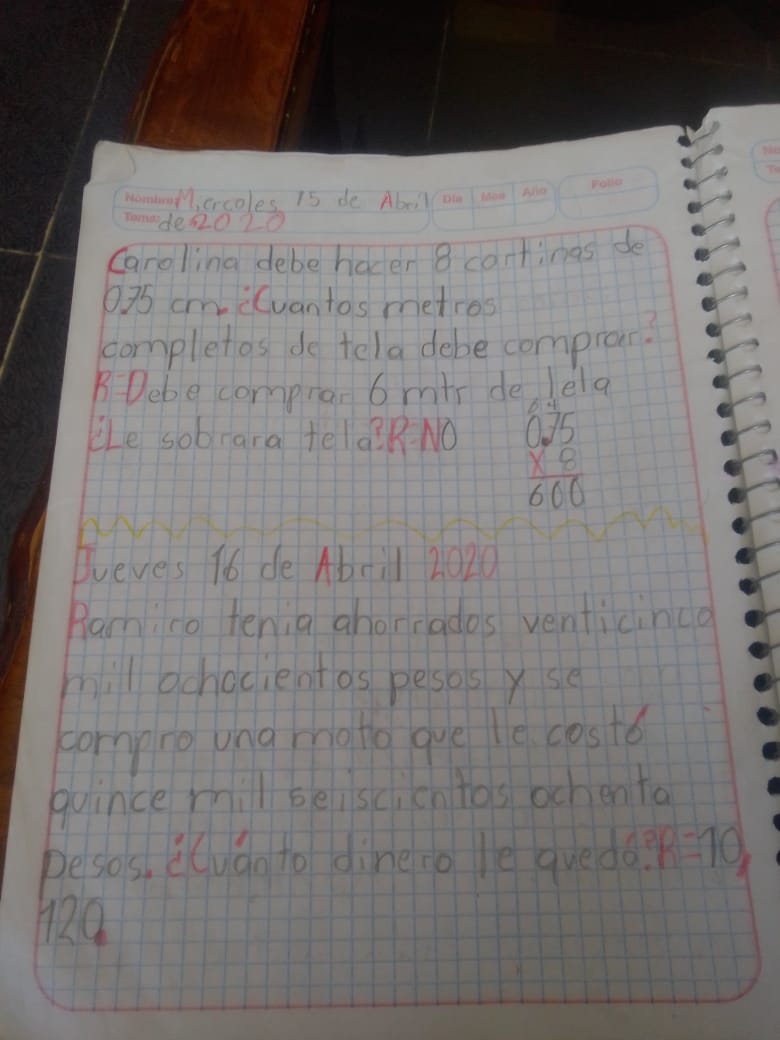 Nombre: Miercoles 15 de Abril Día Mes Año Folio
Tema: de 2020
Carolina debe hacer 8 cortinas de
0.75 cm. ¿Cuantos metros
completos de tela debe comprar?
R=Debe comprar 6 mtr de tela
¿Le sobrara tela? R=NO
6 4
0.75
x 8
600
Jueves 16 de Abril 2020
Ramiro tenia ahorrados venticinco
mil ochocientos pesos y se
compro una moto que le costó
quince mil seiscientos ochenta
pesos. ¿Cuánto dinero le quedó? R=10,
120.
No
Te